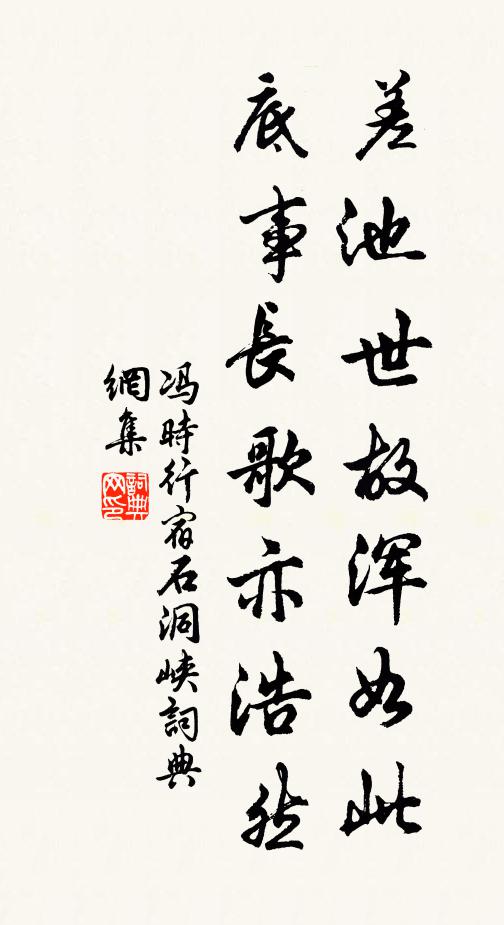 差池世故浑如此
底事長歌亦浩然
冯時行宿石洞峡詞典
網集
詞典
网印